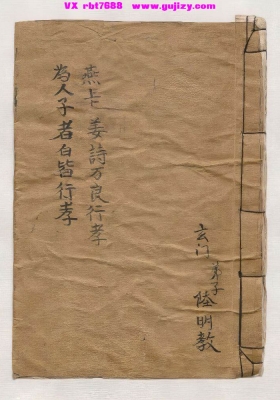 VX rbt7688 www.gujizy.com
玄门 弟子 陸明教
燕卡 姜詩万良行孝
為人子者白皆行孝